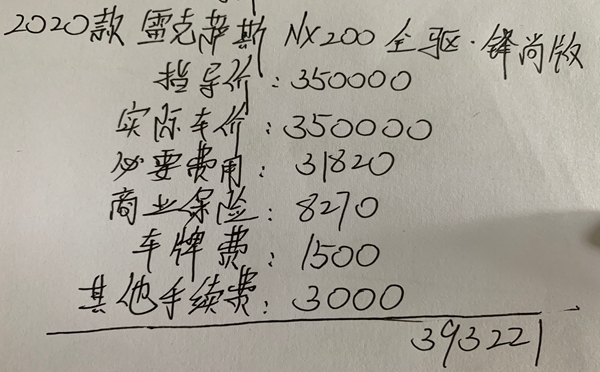 2020款 雷克萨斯 NX200 全驱·锋尚版
指导价:350000
实际车价:350000
必要费用:31820
商业保险:8270
车牌费:1500
其他手续费:3000
393221